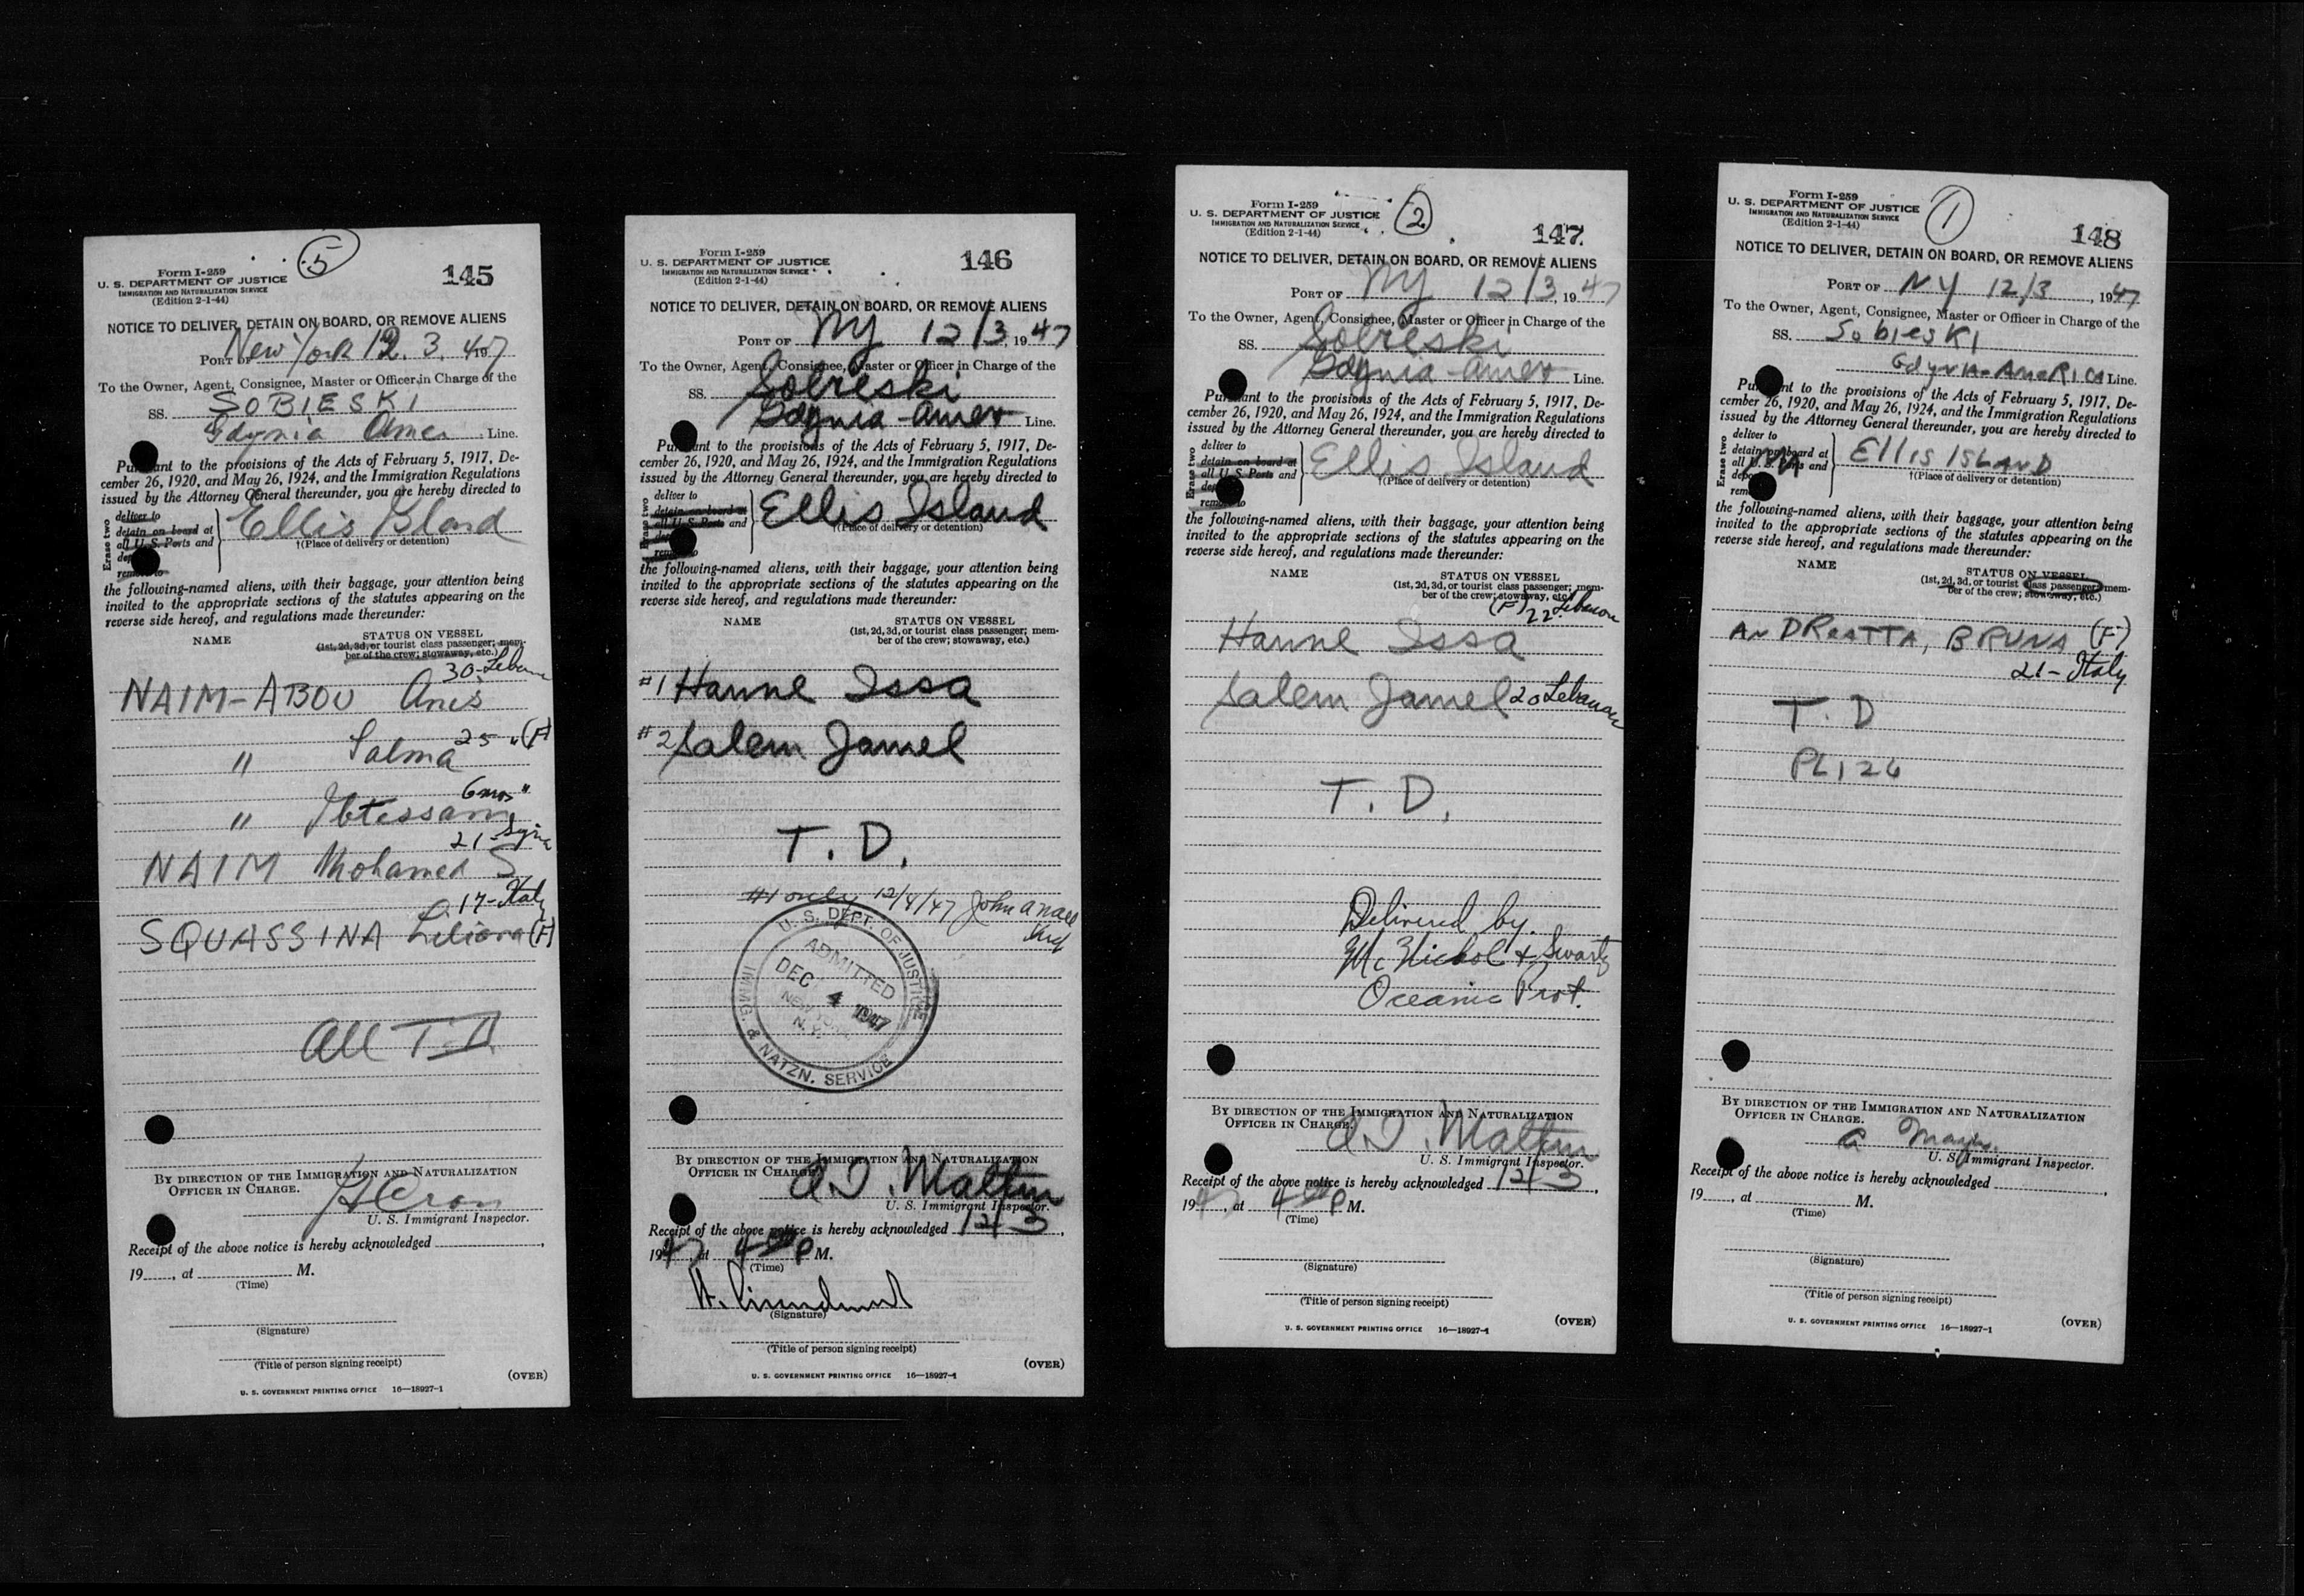 5
Form I-259
U. S. DEPARTMENT OF JUSTICE
IMMIGRATION AND NATURALIZATION SERVICE
(Edition 2-1-44)
145
NOTICE TO DELIVER, DETAIN ON BOARD, OR REMOVE ALIENS
PORT OF New York 12. 3. 1947
To the Owner, Agent, Consignee, Master or Officer in Charge of the
SS. SOBIESKI
Gdynia Amer Line.
Pursuant to the provisions of the Acts of February 5, 1917, De-
cember 26, 1920, and May 26, 1924, and the Immigration Regulations
issued by the Attorney General thereunder, you are hereby directed to
Erase two
deliver to
detain on board at
all U. S. Ports and
remove to
Ellis Island
†(Place of delivery or detention)
the following-named aliens, with their baggage, your attention being
invited to the appropriate sections of the statutes appearing on the
reverse side hereof, and regulations made thereunder:
NAME STATUS ON VESSEL
(1st, 2d, 3d, or tourist class passenger; mem-
ber of the crew; stowaway, etc.)
30-
NAIM-ABOU Anis
25 " (F)
" Salma
6 mos "
" Ibtessam
21-Syria
NAIM Mohamed S
17-Italy
SQUASSINA Liliana (F)
All T.D
BY DIRECTION OF THE IMMIGRATION AND NATURALIZATION
OFFICER IN CHARGE.
U. S. Immigrant Inspector.
Receipt of the above notice is hereby acknowledged
19 , at M.
(Time)
(Signature)
(Title of person signing receipt)
(OVER)
U. S. GOVERNMENT PRINTING OFFICE 16—18927-1
Form I-259
U. S. DEPARTMENT OF JUSTICE
IMMIGRATION AND NATURALIZATION SERVICE
(Edition 2-1-44)
146
NOTICE TO DELIVER, DETAIN ON BOARD, OR REMOVE ALIENS
PORT OF NY 12/3, 1947
To the Owner, Agent, Consignee, Master or Officer in Charge of the
SS. Sobieski
Gdynia-Amer Line.
Pursuant to the provisions of the Acts of February 5, 1917, De-
cember 26, 1920, and May 26, 1924, and the Immigration Regulations
issued by the Attorney General thereunder, you are hereby directed to
Erase two
deliver to
detain on board at
all U. S. Ports and
remove to
Ellis Island
†(Place of delivery or detention)
the following-named aliens, with their baggage, your attention being
invited to the appropriate sections of the statutes appearing on the
reverse side hereof, and regulations made thereunder:
NAME STATUS ON VESSEL
(1st, 2d, 3d, or tourist class passenger; mem-
ber of the crew; stowaway, etc.)
#1 Hanne Issa
#2 Salem Jamel
T. D.
#1 only 12/4/47 John
U. S. DEPT. OF JUSTICE
ADMITTED
DEC 4 1947
NEW YORK
N. Y.
IMMG. & NATZN. SERVICE
BY DIRECTION OF THE IMMIGRATION AND NATURALIZATION
OFFICER IN CHARGE.
U. S. Immigrant Inspector.
Receipt of the above notice is hereby acknowledged 12/3,
1947, at 4 P M.
(Time)
(Signature)
(Title of person signing receipt)
(OVER)
U. S. GOVERNMENT PRINTING OFFICE 16—18927-1
2
Form I-259
U. S. DEPARTMENT OF JUSTICE
IMMIGRATION AND NATURALIZATION SERVICE
(Edition 2-1-44)
147
NOTICE TO DELIVER, DETAIN ON BOARD, OR REMOVE ALIENS
PORT OF NY 12/3, 1947
To the Owner, Agent, Consignee, Master or Officer in Charge of the
SS. Sobieski
Gdynia-Amer Line.
Pursuant to the provisions of the Acts of February 5, 1917, De-
cember 26, 1920, and May 26, 1924, and the Immigration Regulations
issued by the Attorney General thereunder, you are hereby directed to
Erase two
deliver to
detain on board at
all U. S. Ports and
remove to
Ellis Island
†(Place of delivery or detention)
the following-named aliens, with their baggage, your attention being
invited to the appropriate sections of the statutes appearing on the
reverse side hereof, and regulations made thereunder:
NAME STATUS ON VESSEL
(1st, 2d, 3d, or tourist class passenger; mem-
ber of the crew; stowaway, etc.)
(F) 22 Lebanon
Hanne Issa
Salem Jamel 20 Lebanon
T. D.
Delivered by.
McNickol & Swartz
Oceanic Prot.
BY DIRECTION OF THE IMMIGRATION AND NATURALIZATION
OFFICER IN CHARGE.
U. S. Immigrant Inspector.
Receipt of the above notice is hereby acknowledged 12/3,
1947, at 4 P M.
(Time)
(Signature)
(Title of person signing receipt)
(OVER)
U. S. GOVERNMENT PRINTING OFFICE 16—18927-1
1
Form I-259
U. S. DEPARTMENT OF JUSTICE
IMMIGRATION AND NATURALIZATION SERVICE
(Edition 2-1-44)
148
NOTICE TO DELIVER, DETAIN ON BOARD, OR REMOVE ALIENS
PORT OF NY 12/3, 1947
To the Owner, Agent, Consignee, Master or Officer in Charge of the
SS. SobiesKI
Gdynia-AmeRICA Line.
Pursuant to the provisions of the Acts of February 5, 1917, De-
cember 26, 1920, and May 26, 1924, and the Immigration Regulations
issued by the Attorney General thereunder, you are hereby directed to
Erase two
deliver to
detain on board at
all U. S. Ports and
Ellis ISLAND
†(Place of delivery or detention)
the following-named aliens, with their baggage, your attention being
invited to the appropriate sections of the statutes appearing on the
reverse side hereof, and regulations made thereunder:
NAME STATUS ON VESSEL
(1st, 2d, 3d, or tourist class passenger; mem-
ber of the crew; stowaway, etc.)
AnDReATTA, BRUNA (F)
21- Italy
T. D
PL 126
BY DIRECTION OF THE IMMIGRATION AND NATURALIZATION
OFFICER IN CHARGE.
U. S. Immigrant Inspector.
Receipt of the above notice is hereby acknowledged
19 , at M.
(Time)
(Signature)
(Title of person signing receipt)
(OVER)
U. S. GOVERNMENT PRINTING OFFICE 16—18927-1